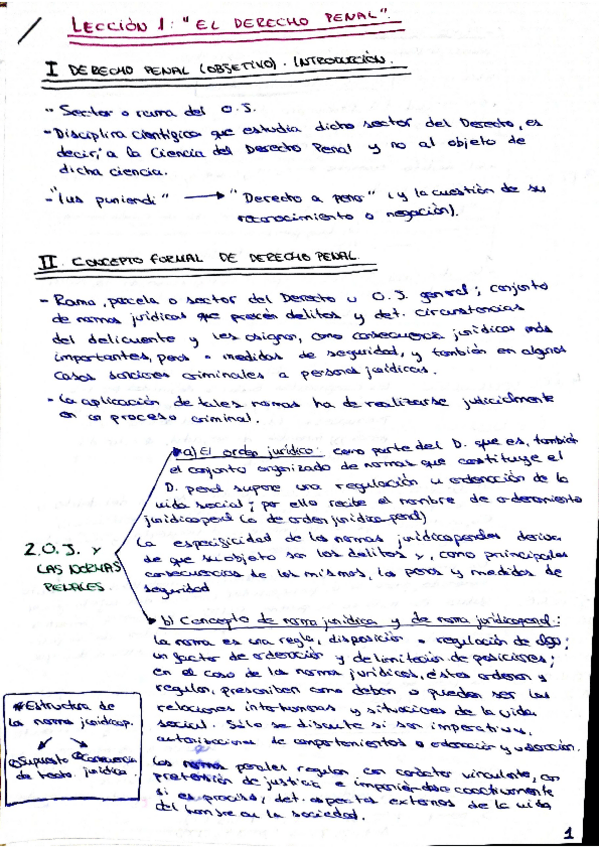 LECCIÓN 1: "EL DERECHO PENAL".
I DERECHO PENAL (OBJETIVO). INTRODUCCIÓN.
- Sector o rama del O.J.
- Disciplina científica que estudia dicho sector del Derecho, es
decir, a la Ciencia del Derecho Penal y no al objeto de
dicha ciencia.
- "Ius puniendi" → "Derecho a penar" (y la cuestión de su
reconocimiento o negación).
II. CONCEPTO FORMAL DE DERECHO PENAL.
- Rama, parcela o sector del Derecho u O.J. general; conjunto
de normas jurídicas que preveen delitos y det. circunstancias
del delincuente y les asignan, como consecuencias jurídicas más
importantes, penas o medidas de seguridad, y también en algunos
casos sanciones criminales a personas jurídicas.
- La aplicación de tales normas ha de realizarse judicialmente
en un proceso criminal.
2. O.J. Y
LAS NORMAS
PENALES.
a) El orden jurídico: como parte del D. que es, también
el conjunto organizado de normas que constituye el
D. penal supone una regulación u ordenación de la
vida social; por ello recibe el nombre de ordenamiento
jurídicopenal (o de orden jurídico-penal)
La especificidad de las normas jurídicopenales deriva
de que su objeto son los delitos y, como principales
consecuencias de los mismos, las penas y medidas de
seguridad
b) Concepto de norma jurídica y de norma jurídicopenal:
la norma es una regla, disposición o regulación de algo;
un factor de ordenación y delimitación de posiciones;
en el caso de las normas jurídicas, éstas ordenan y
regulan, prescriben como deben o pueden ser las
relaciones interhumanas y situaciones de la vida
social. Sólo se discute si son imperativas,
autorizaciones de comportamientos o ordenación y valoración.
Las normas penales regulan con carácter vinculante, con
pretensión de justicia e imponiéndose coactivamente
si es preciso, det. aspectos externos de la vida
del hombre en la sociedad.
* Estructura de
la norma jurídicop.
① Supuesto de hecho
② Consecuencia jurídica.
1